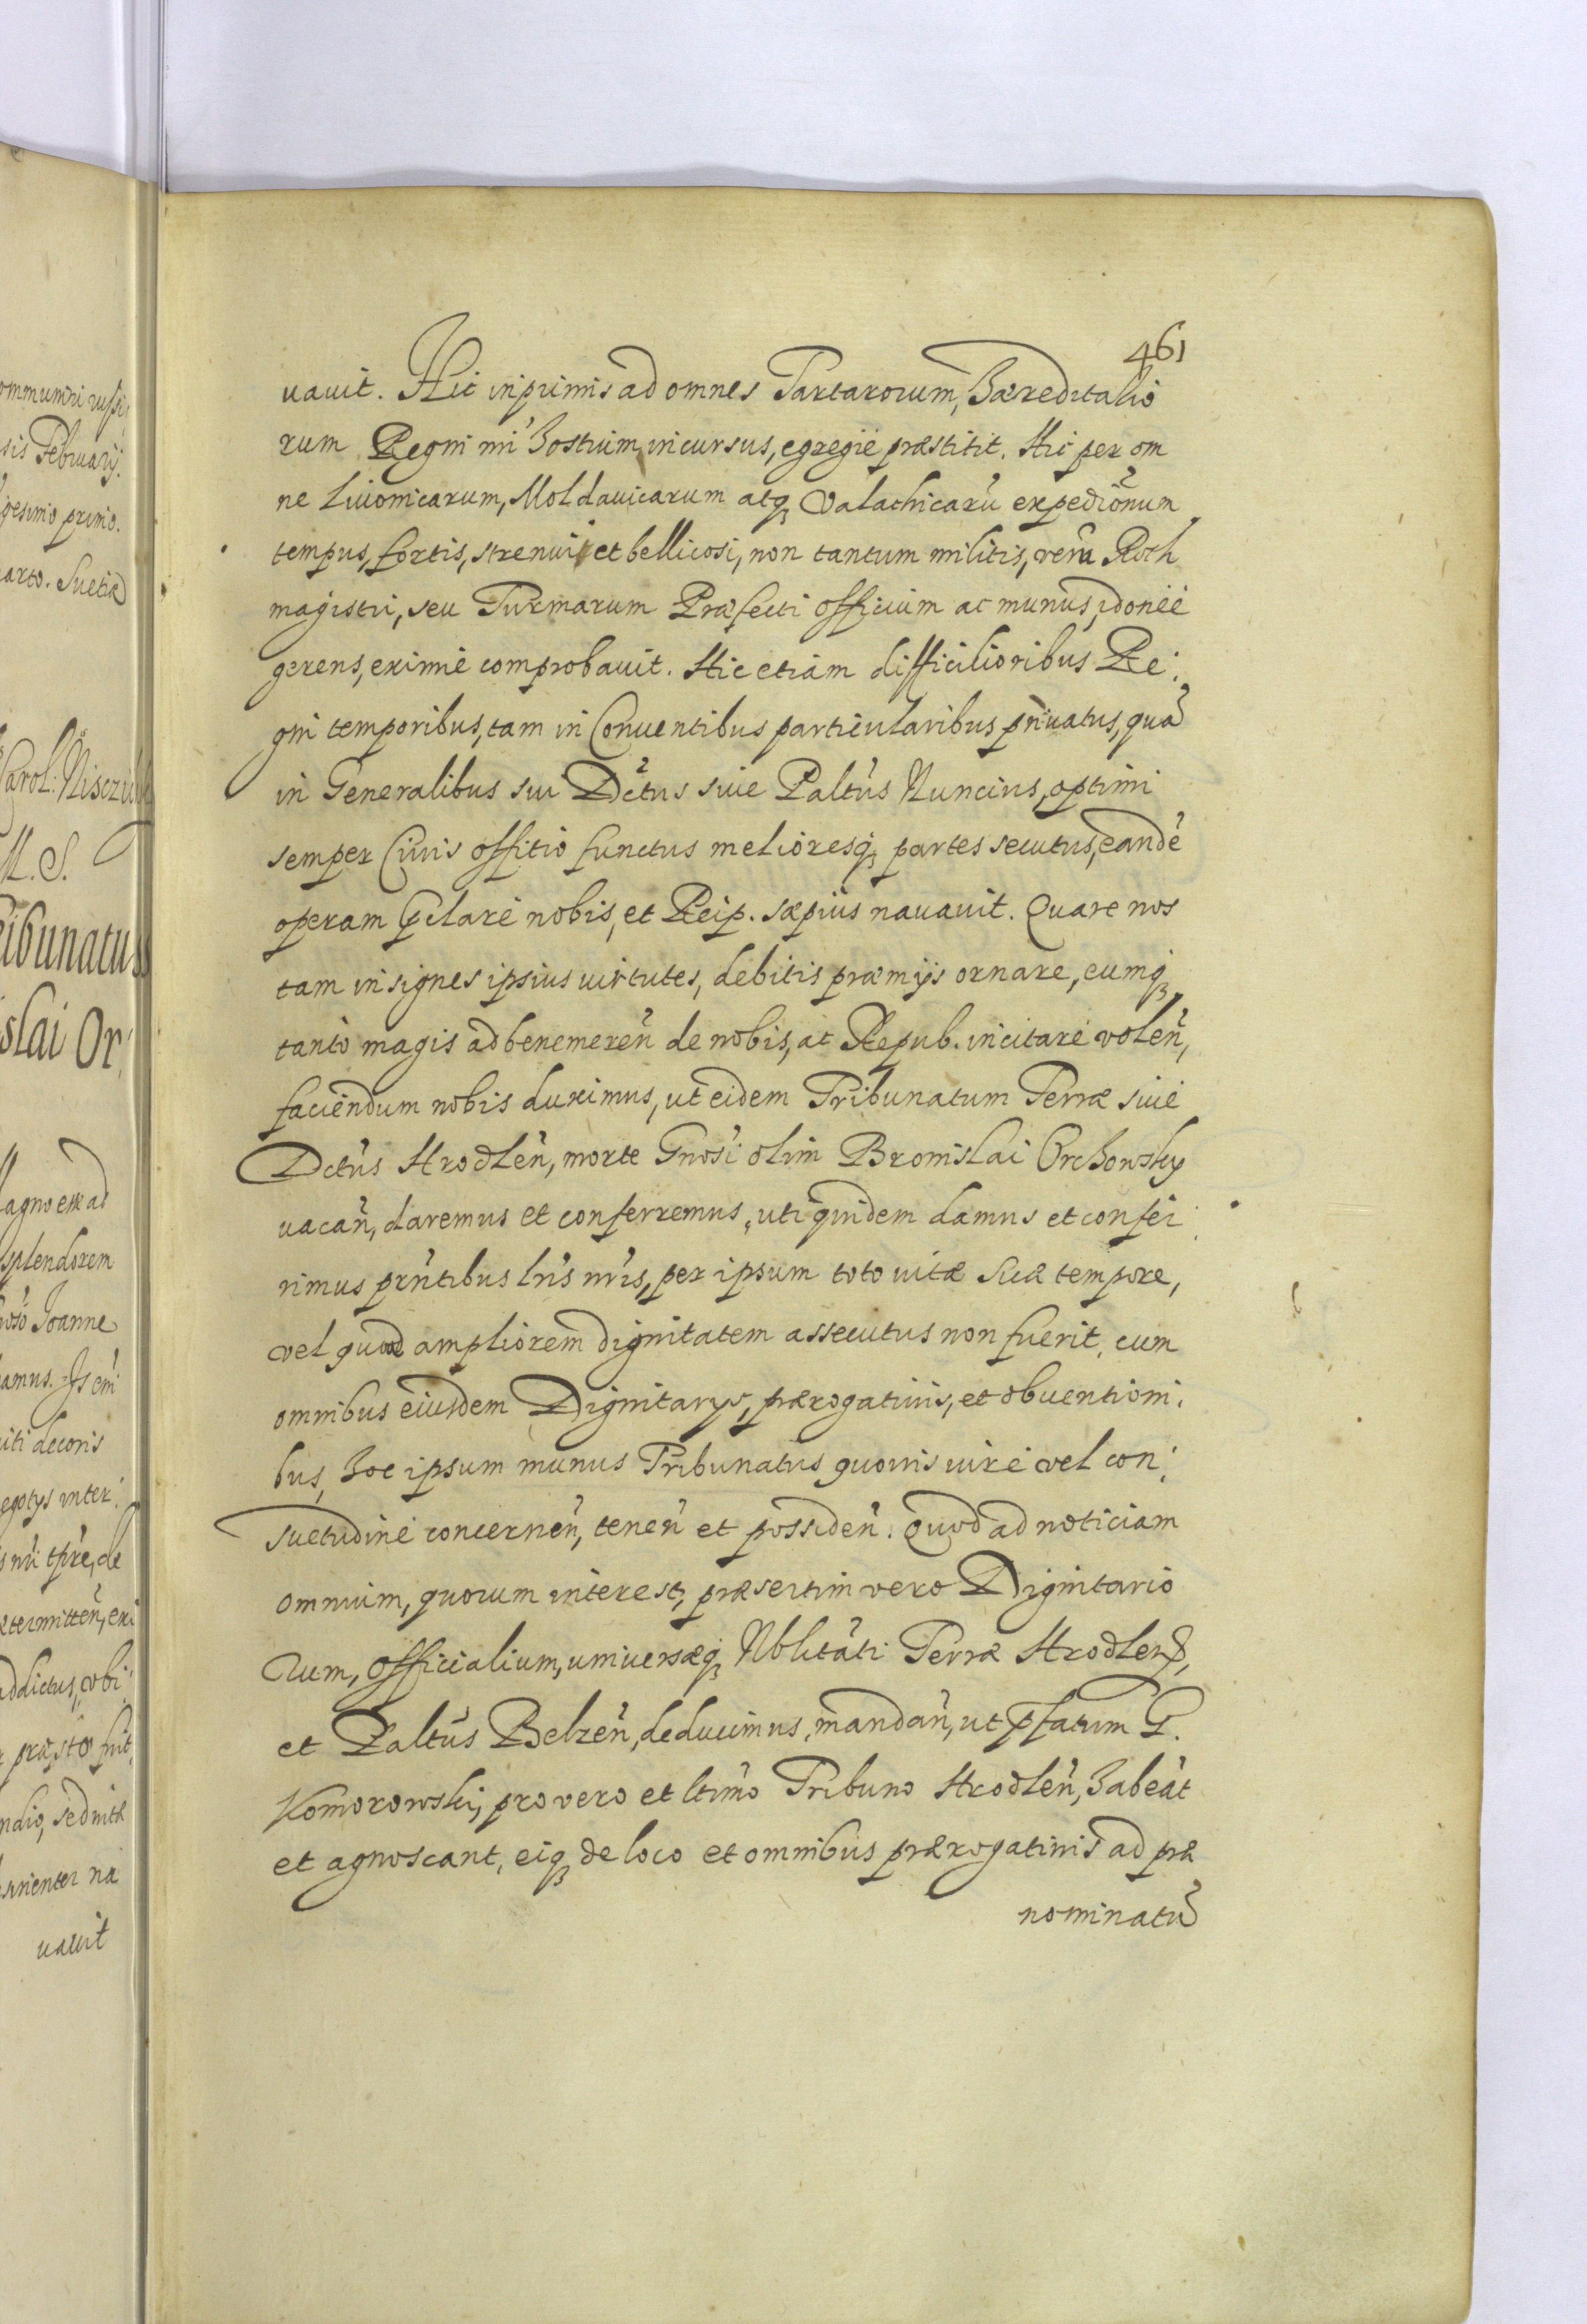 461
uauit. Hic inprimis ad omnes Tartarorum, Haereditario
rum Regni nri Hostium incursus, egregie praestitit. Hic per om
ne Liuonicarum, Moldauicarum atq Valachicaru expedionum
tempus, fortis, strenui et bellicosi, non tantum militis, veru Roth
magistri, seu Turmarum Praefecti officium ac munus, idonee
gerens, eximie comprobauit. Hic etiam difficilioribus Re:
gni temporibus, tam in Conuentibus particularibus priuatus, qua
in Generalibus sui Dctus siue Paltus Nuncius, optimi
semper Ciuis offitio functus melioresq partes secutus, eande
operam pclare nobis, et Reip. saepius nauauit. Quare nos
tam insignes ipsius uirtutes, debitis praemijs ornare, eumq
tanto magis ad benemeren de nobis, ac Repub. incitare volen,
faciendum nobis duximus, ut eidem Tribunatum Terrae siue
Dctus Hrodlen, morte Gnosi olim Bronislai Orchowsky
uacan, daremus et conferremus, uti quidem damus et confer
rimus pntibus lris nris, per ipsum toto uitae suae tempore,
vel quod ampliorem dignitatem assecutus non fuerit, cum
omnibus eiusdem Dignitarys, praerogatiuis, et obuentioni.
bus, hoc ipsum munus Tribunatus quouis iure vel con:
suetudine concernen, tenen et possiden. Quod ad noticiam
omnium, quorum interest, praesertim vero Dignitario
rum, Officialium, uniuersaeq Nblitati Terrae Hrodlens,
et Paltus Belzen, deducimus, mandan, ut pfatum G.
Komorowski, pro vero et ltimo Tribuno Hrodlen, habeat
et agnoscant, eiq de loco et omnibus praerogatiuis ad prae
nominatu